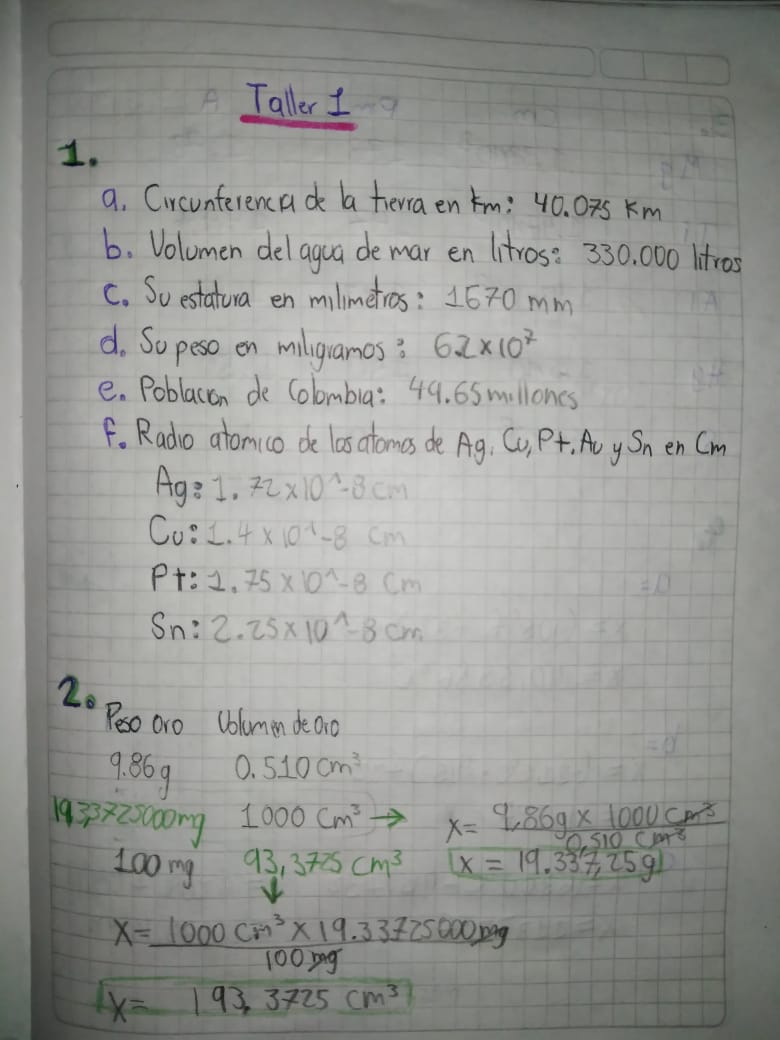 Taller 1
1.
a. Circunferencia de la tierra en km: 40.075 Km
b. Volumen del agua de mar en litros: 330.000 litros
c. Su estatura en milimetros: 1670 mm
d. Su peso en miligramos: 62x10⁷
e. Poblacion de Colombia: 49.65 millones
f. Radio atomico de los atomos de Ag, Cu, Pt, Au y Sn en Cm
Ag: 1.72x10^-8 cm
Cu: 1.4 x 10^-8 Cm
Pt: 1.75 x 10^-8 Cm
Sn: 2.25x10^-8 cm
2.
Peso oro Volumen de oro
9.86g 0.510 cm³
1000 Cm³ → X= 9,86g x 1000 cm³
0,510 cm³
100 mg 93,3725 cm³ X = 19.337,25g
↓
X= 1000 cm³ x 19.33725000mg
100 mg
X= 193,3725 cm³